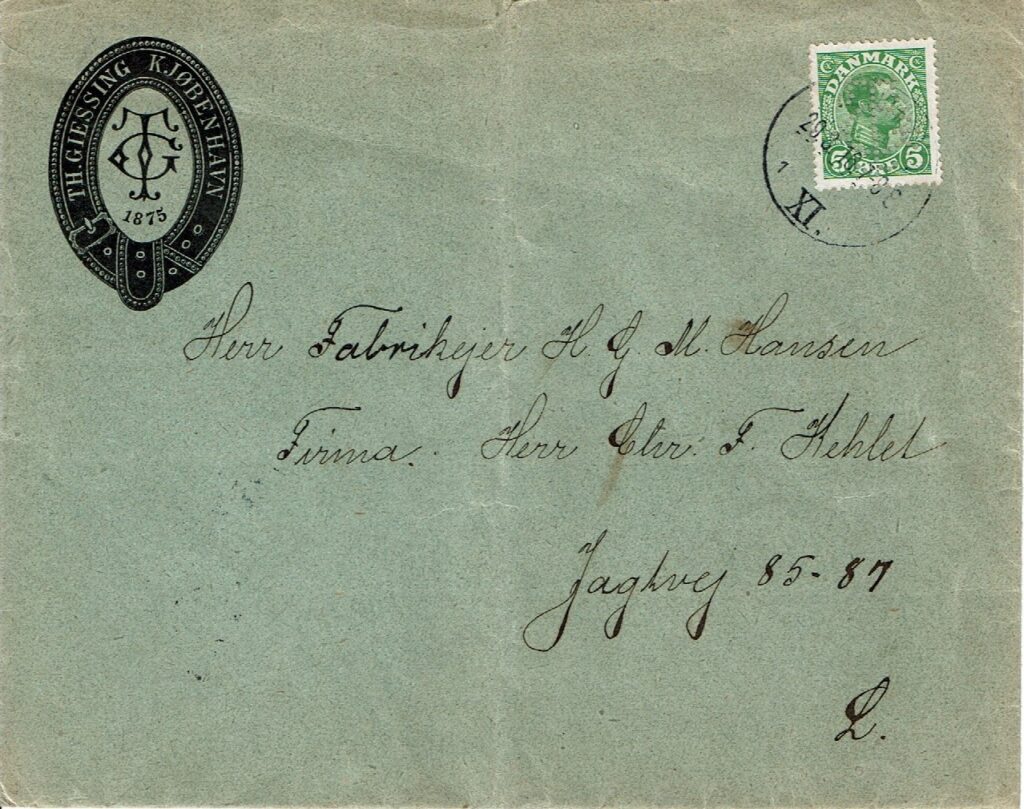 TH. GIESSING KJØBENHAVN
TGC
1875
DANMARK
5 ØRE 5
IX.
Herr Fabrikejer H. G. M. Hansen
Firma. Herr Chr. F. Kehlet
Jagtvej 85-87
L.